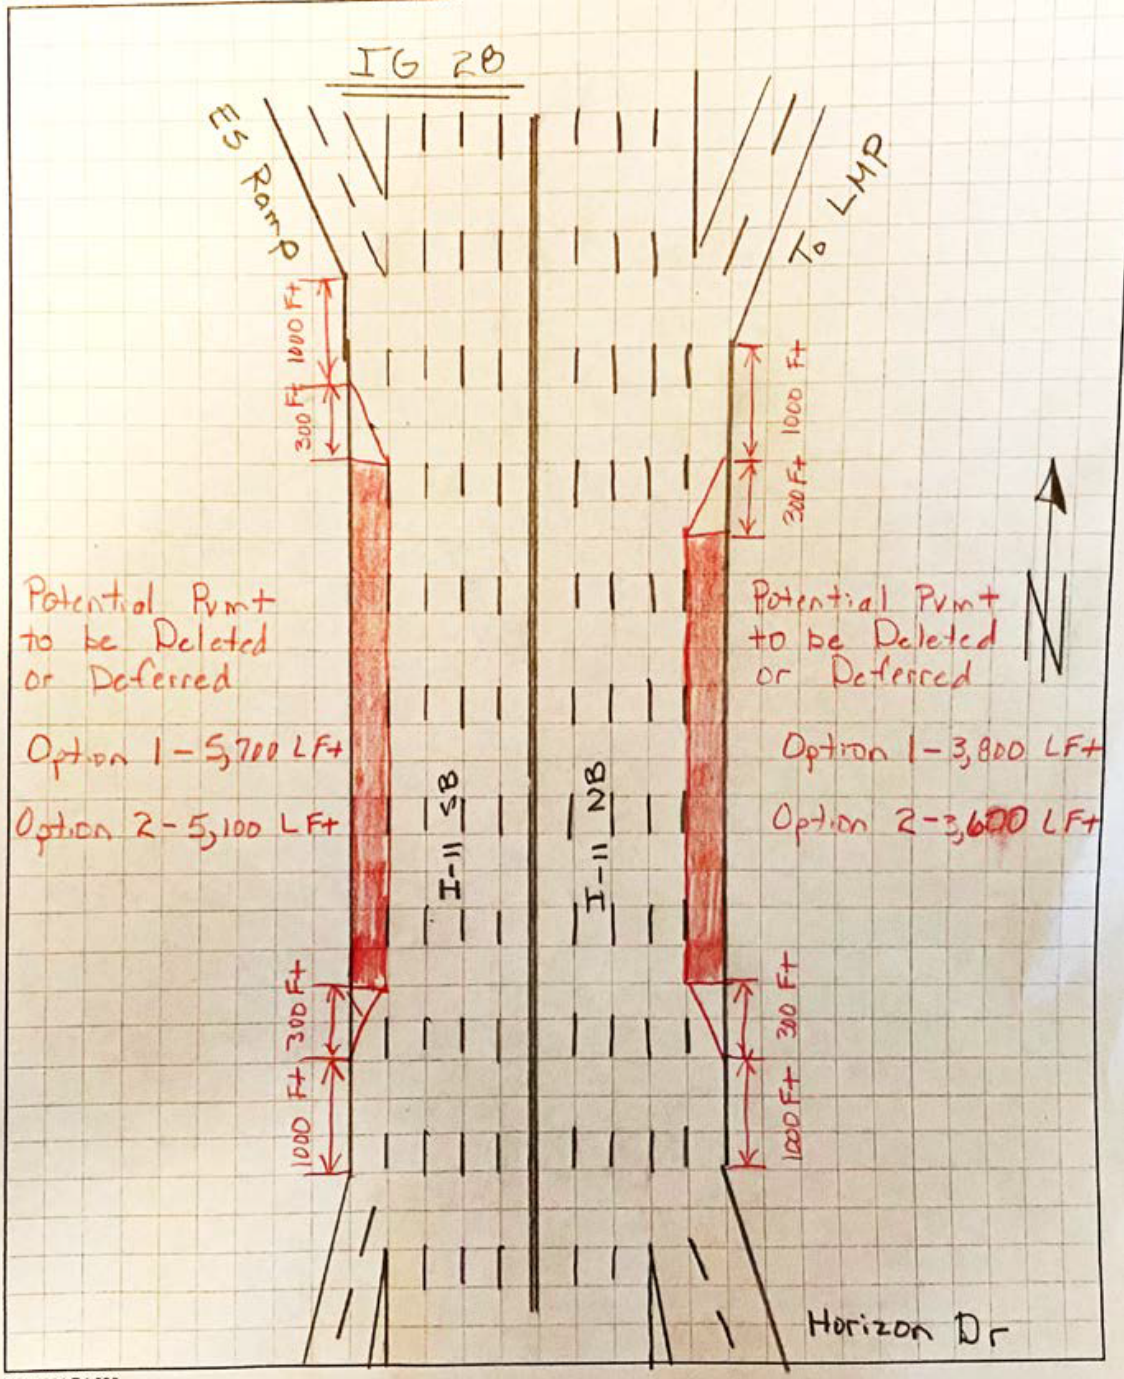 IG 28
ES Ramp
To LMP
1000 Ft
300 Ft
1000 Ft
300 Ft
Potential Pvmt
to be Deleted
or Deferred
Option 1 - 5,700 LFt
Option 2 - 5,100 LFt
Potential Pvmt
to be Deleted
or Deferred
Option 1 - 3,800 LFt
Option 2 - 3,600 LFt
N
I-11 SB
I-11 NB
300 Ft
1000 Ft
300 Ft
1000 Ft
Horizon Dr